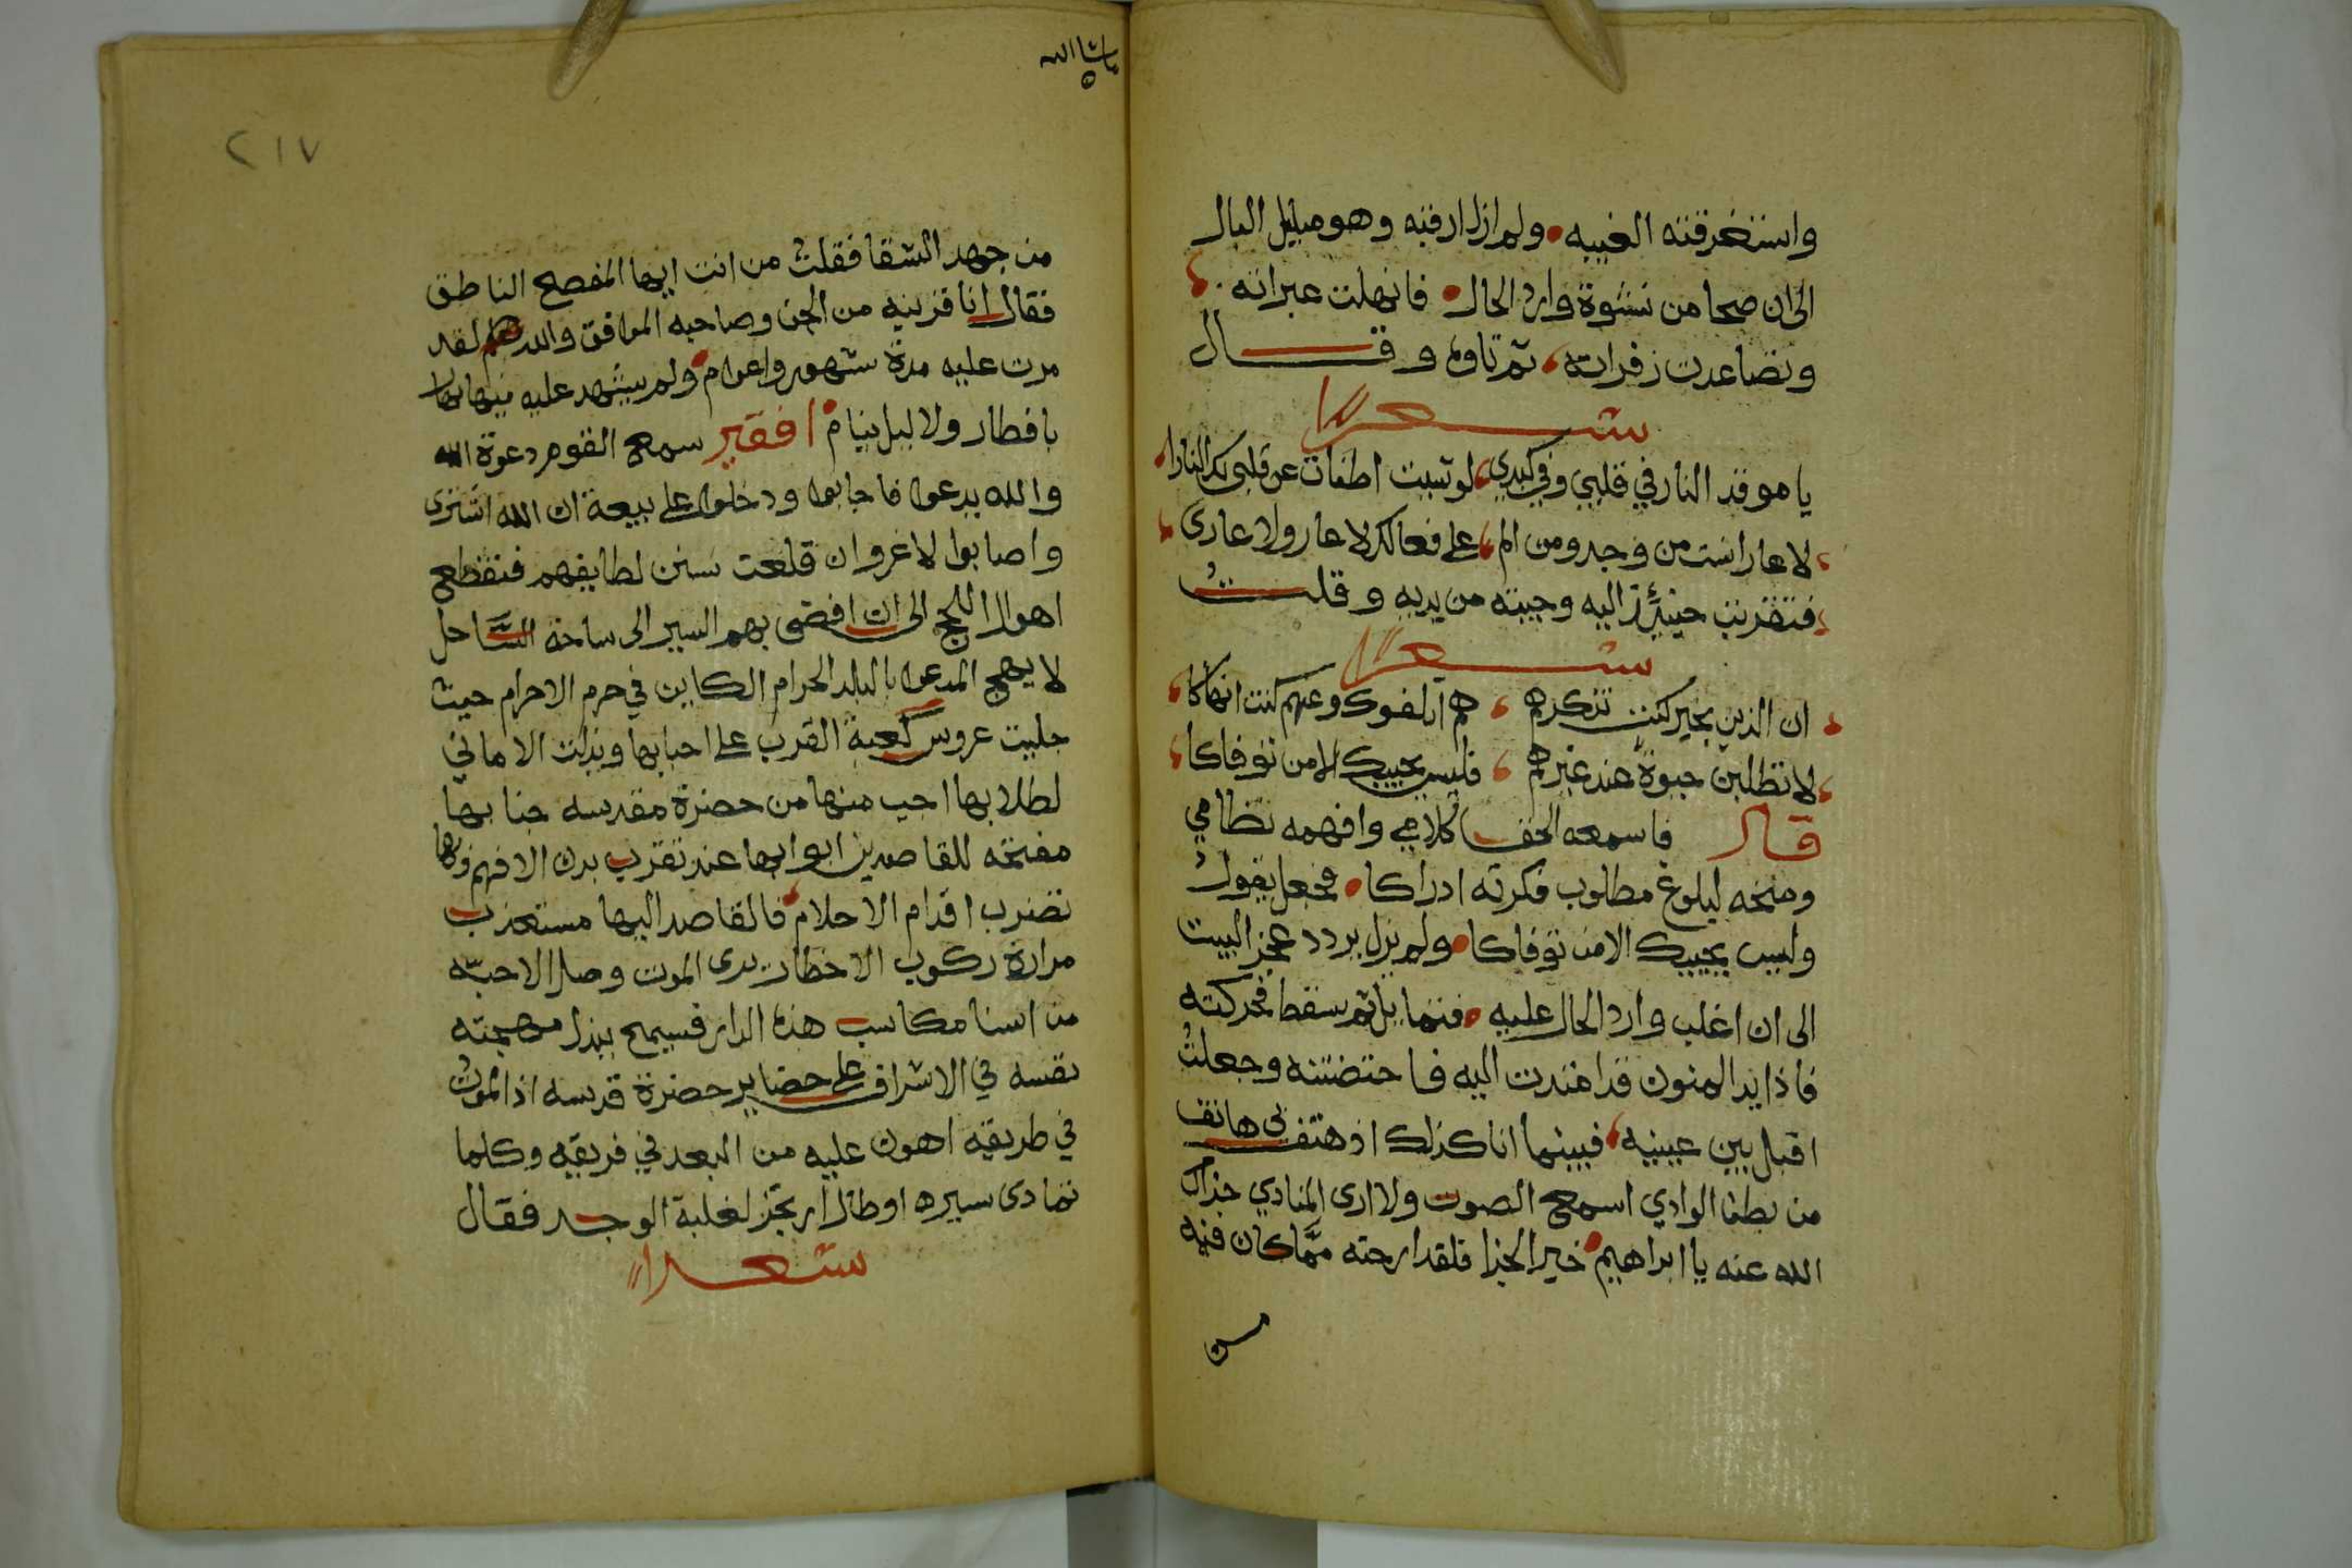 واستغرقته الغيبه ولم ازل ارقبه وهو مبلبل البال
الى ان صحا من نشوة وارد الحال فانهلت عبراته
وتصاعدت زفراته ثم تاوه وقال
شعرا
يا موقد النار في قلبي وفي كبدي لو شيت اطفات عن قلبي بك النارا
لا عار انت من وجد ومن الم على فعالك لا عار ولا عارى
فتقربت حينئذ اليه وجيته من يديه وقلت
شعرا
ان الذين بخير كنت تذكرهم هم اتلفوك وعنهم كنت انهاكا
لا تطلبن حيوة عند غيرهم فليس يحييك الا من توفاكا
قال فاسمعه الحق كلامي وافهمه نظامي
ومنحه لبلوغ مطلوب فكرته ادراكا فجعل يقول
وليس يحييك الا من توفاكا ولم يزل يردد عجز البيت
الى ان اغلب وارد الحال عليه فتمايل ثم سقط فحركته
فاذا يد المنون قد امتدت اليه فاحتضنته وجعلت
اقبل بين عينيه فبينما انا كذلك اذ هتف بى هاتف
من بطن الوادي اسمع الصوت ولا ارى المنادي جزاك
الله عنه يا ابراهيم خير الجزا فلقد ارحته مما كان فيه
من
ماشاالله
٢١٧
من جهد الشقا فقلت من انت ايها المفصح الناطق
فقال انا قرينه من الجن وصاحبه الموافق والله لقد
مرت عليه مدة شهور واعوام ولم يشهد عليه فيها نهار
بافطار ولا ليل بنيام افقير سمع القوم دعوة الله
والله يدعوا فاجابوا ودخلوا على بيعة ان الله اشترى
واصابوا لا غروان قلعت سفن لطايفهم فتقطع
اهوال اللجج الى ان افضى بهم السير الى ساحة الساحل
لا يهيج المدعوا بالبلد الحرام الكاين في حرم الاحرام حيث
جليت عروس كعبة القرب على احبابها وبذلت الاماني
لطلابها احب منها من حضرة مقدسه جنابها
مفتحه للقاصدين ابوابها عند تقرب بدن الافهم
تضرب اقدام الاحلام فالقاصد اليها مستعذب
مرارة ركوب الاخطار يرى الموت وصل الاحبه
من اسنا مكاسب هذه الدار فسيمح ببذل مهجته
نفسه في الاشراف على حضاير حضرة قدسه اذ الموت
في طريقه اهون عليه من البعد في فريقه وكلما
تمادى سيره اوطال ارتجز لغلبة الوجد فقال
شعرا